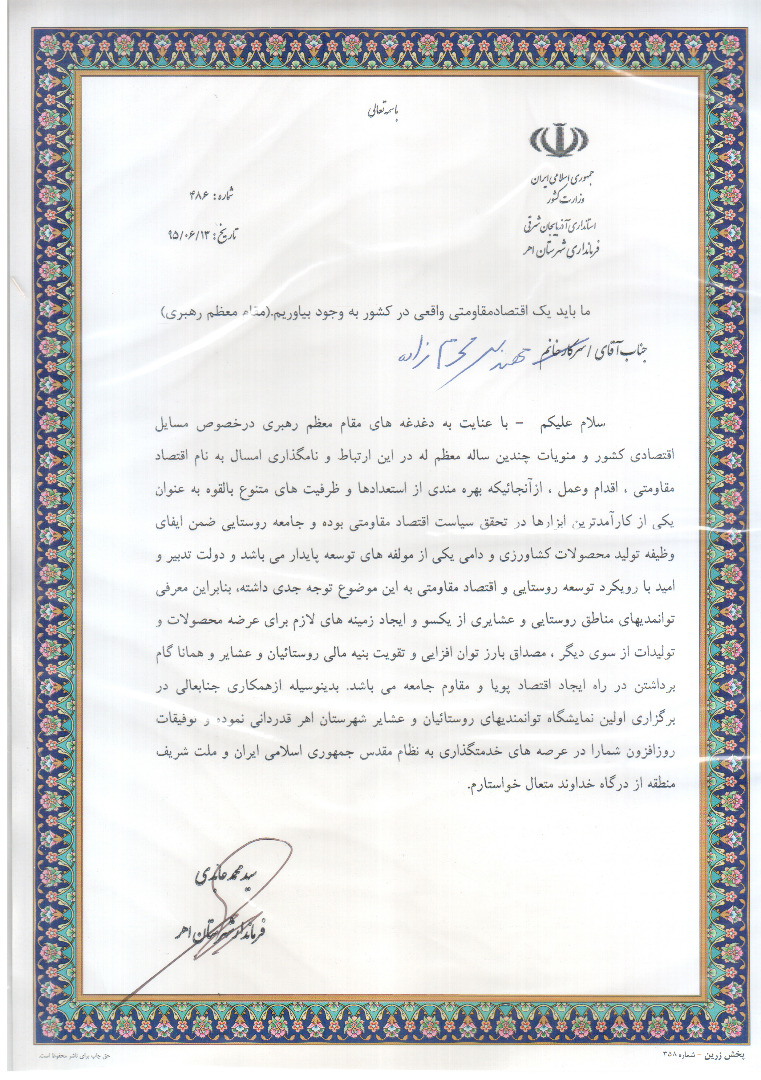 باسمه تعالی
جمهوری اسلامی ایران
وزارت کشور
استانداری آذربایجان شرقی
فرمانداری شهرستان اهر
شماره: ۴۸۶
تاریخ: ۹۵/۰۶/۱۳
ما باید یک اقتصادمقاومتی واقعی در کشور به وجود بیاوریم.(مقام معظم رهبری)
جناب آقای / سرکارخانم مهندس محرم زاده
سلام علیکم – با عنایت به دغدغه های مقام معظم رهبری درخصوص مسایل
اقتصادی کشور و منویات چندین ساله معظم له در این ارتباط و نامگذاری امسال به نام اقتصاد
مقاومتی ، اقدام وعمل ، ازآنجائیکه بهره مندی از استعدادها و ظرفیت های متنوع بالقوه به عنوان
یکی از کارآمدترین ابزارها در تحقق سیاست اقتصاد مقاومتی بوده و جامعه روستایی ضمن ایفای
وظیفه تولید محصولات کشاورزی و دامی یکی از مولفه های توسعه پایدار می باشد و دولت تدبیر و
امید با رویکرد توسعه روستایی و اقتصاد مقاومتی به این موضوع توجه جدی داشته، بنابراین معرفی
توانمدیهای مناطق روستایی و عشایری از یکسو و ایجاد زمینه های لازم برای عرضه محصولات و
تولیدات از سوی دیگر ، مصداق بارز توان افزایی و تقویت بنیه مالی روستائیان و عشایر و همانا گام
برداشتن در راه ایجاد اقتصاد پویا و مقاوم جامعه می باشد. بدینوسیله ازهمکاری جنابعالی در
برگزاری اولین نمایشگاه توانمندیهای روستائیان و عشایر شهرستان اهر قدردانی نموده و توفیقات
روزافزون شمارا در عرصه های خدمتگذاری به نظام مقدس جمهوری اسلامی ایران و ملت شریف
منطقه از درگاه خداوند متعال خواستارم.
سید محمد عابدی
فرماندار شهرستان اهر
پخش زرین – شماره ۳۵۸
حق چاپ برای ناشر محفوظ است.